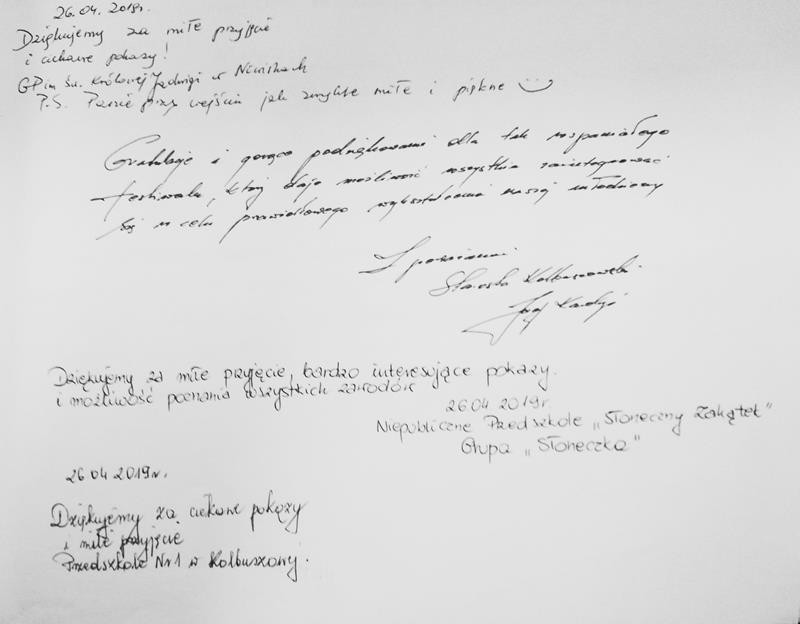 26.04.2019r.
Dziękujemy za miłe przyjęcie
i ciekawe pokazy!
GP im św. Królowej Jadwigi w Niwiskach
P.S. Panie przy wejściu jak zwykle miłe i piękne
Gratulacje i gorące podziękowania dla tak wspaniałego
festiwalu, który daje możliwość wszystkim zaintegrować
się w celu prawidłowego wykształcenia naszej młodzieży
Z poważaniem
Starosta Kolbuszowski
Józef Kardyś
Dziękujemy za miłe przyjęcie, bardzo interesujące pokazy
i możliwość poznania wszystkich zawodów
26.04 2019r.
Niepubliczne Przedszkole „Słoneczny Zakątek"
Grupa „Słoneczka"
26.04 2019r.
Dziękujemy za ciekawe pokazy
i miłe przyjęcie
Przedszkole Nr 1 w Kolbuszowy.